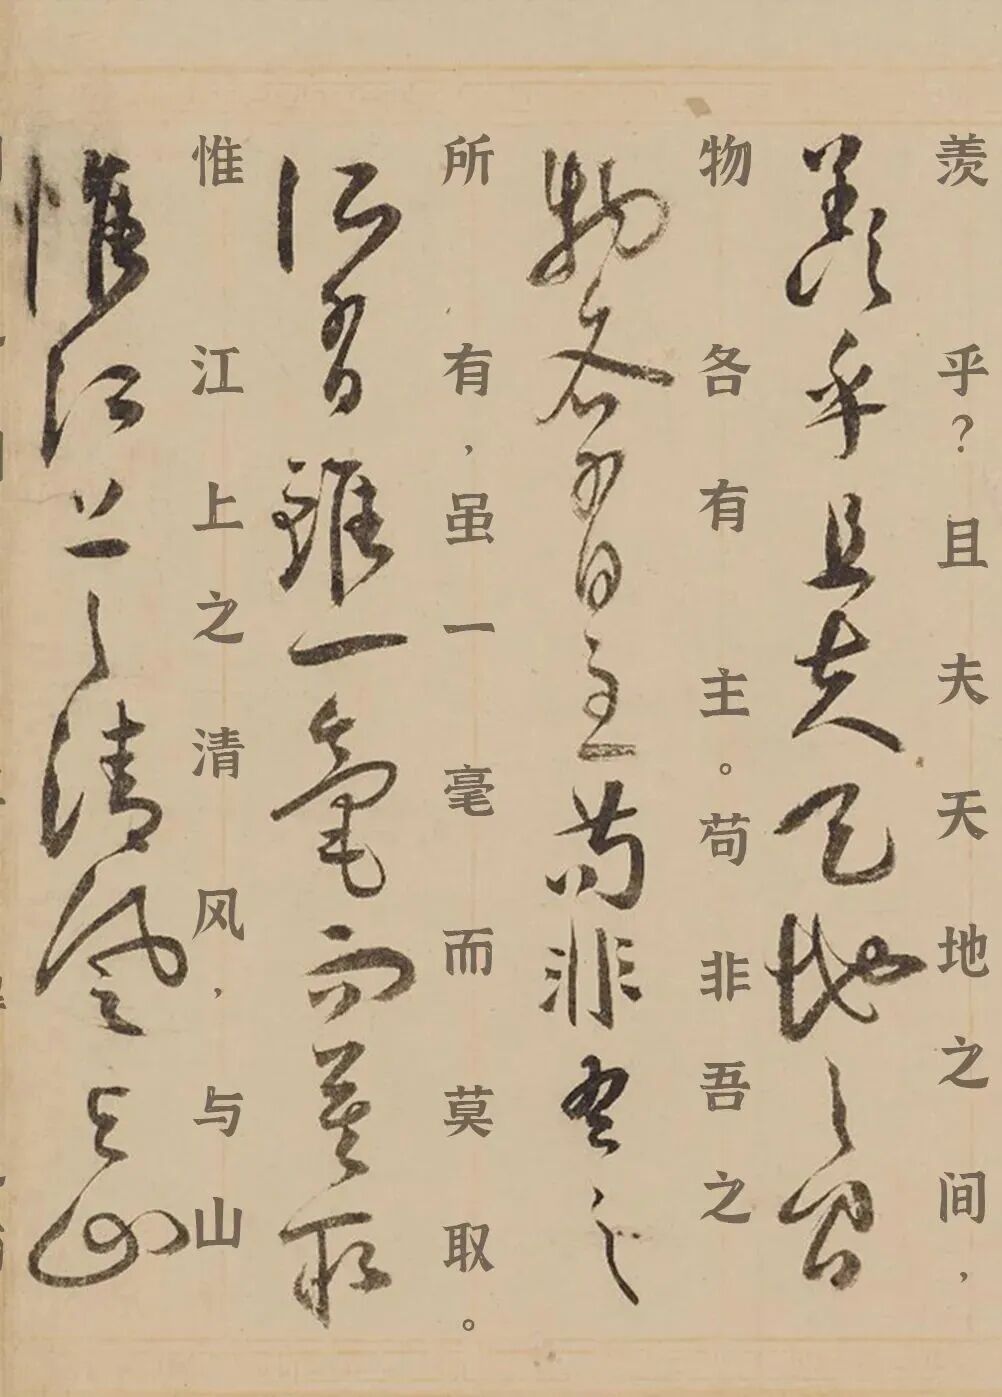 羡乎？且夫天地之间，
羨乎且夫天地之間
物各有主。苟非吾之
物各有主苟非吾之
所有，虽一毫而莫取。
所有雖一毫而莫取
惟江上之清风，与山
惟江上之清風與山